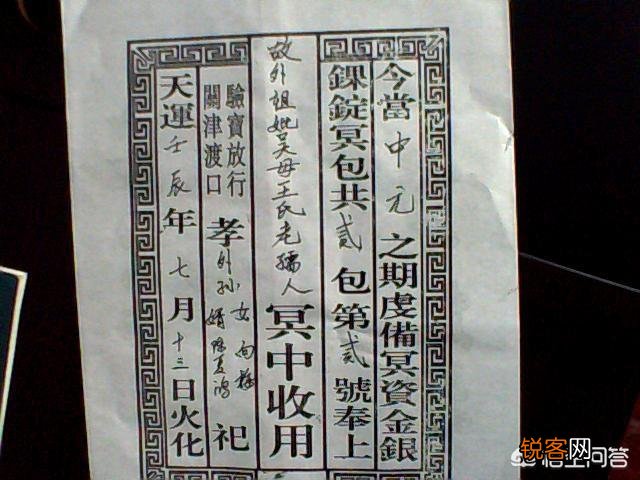 今當中元之期虔備冥資金銀
錁錠冥包共貳包第貳號奉上
故外祖妣吴母王氏老孺人冥中收用
驗寶放行
關津渡口
孝外孙女向梅
婿陈夏鸿
祀
天運壬辰年七月十三日火化
锐客网
悟空问答